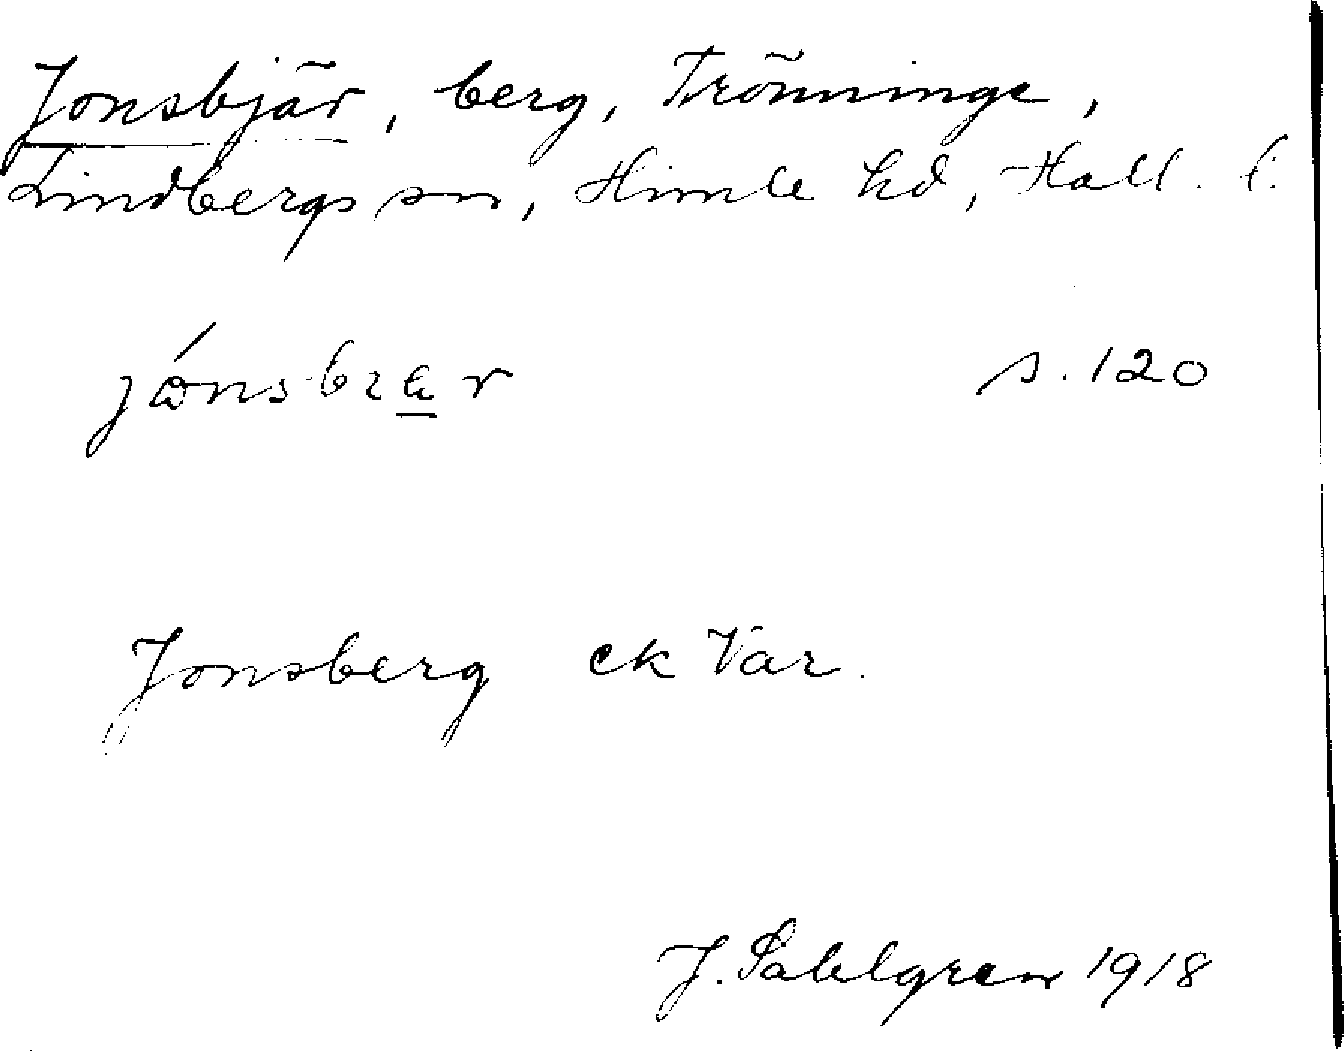 Jonsbjär, berg, Trönninge,
Lindbergs sn, Himle hd, Hall. l.
s. 120
Jonsberg ek Var.
J. Sahlgren 1918